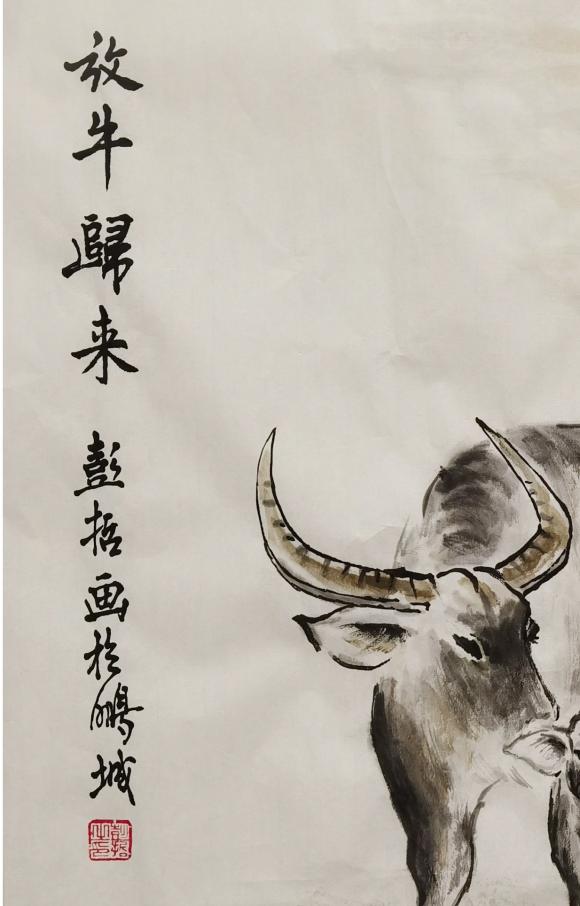 放牛歸来
彭括画於鵬城